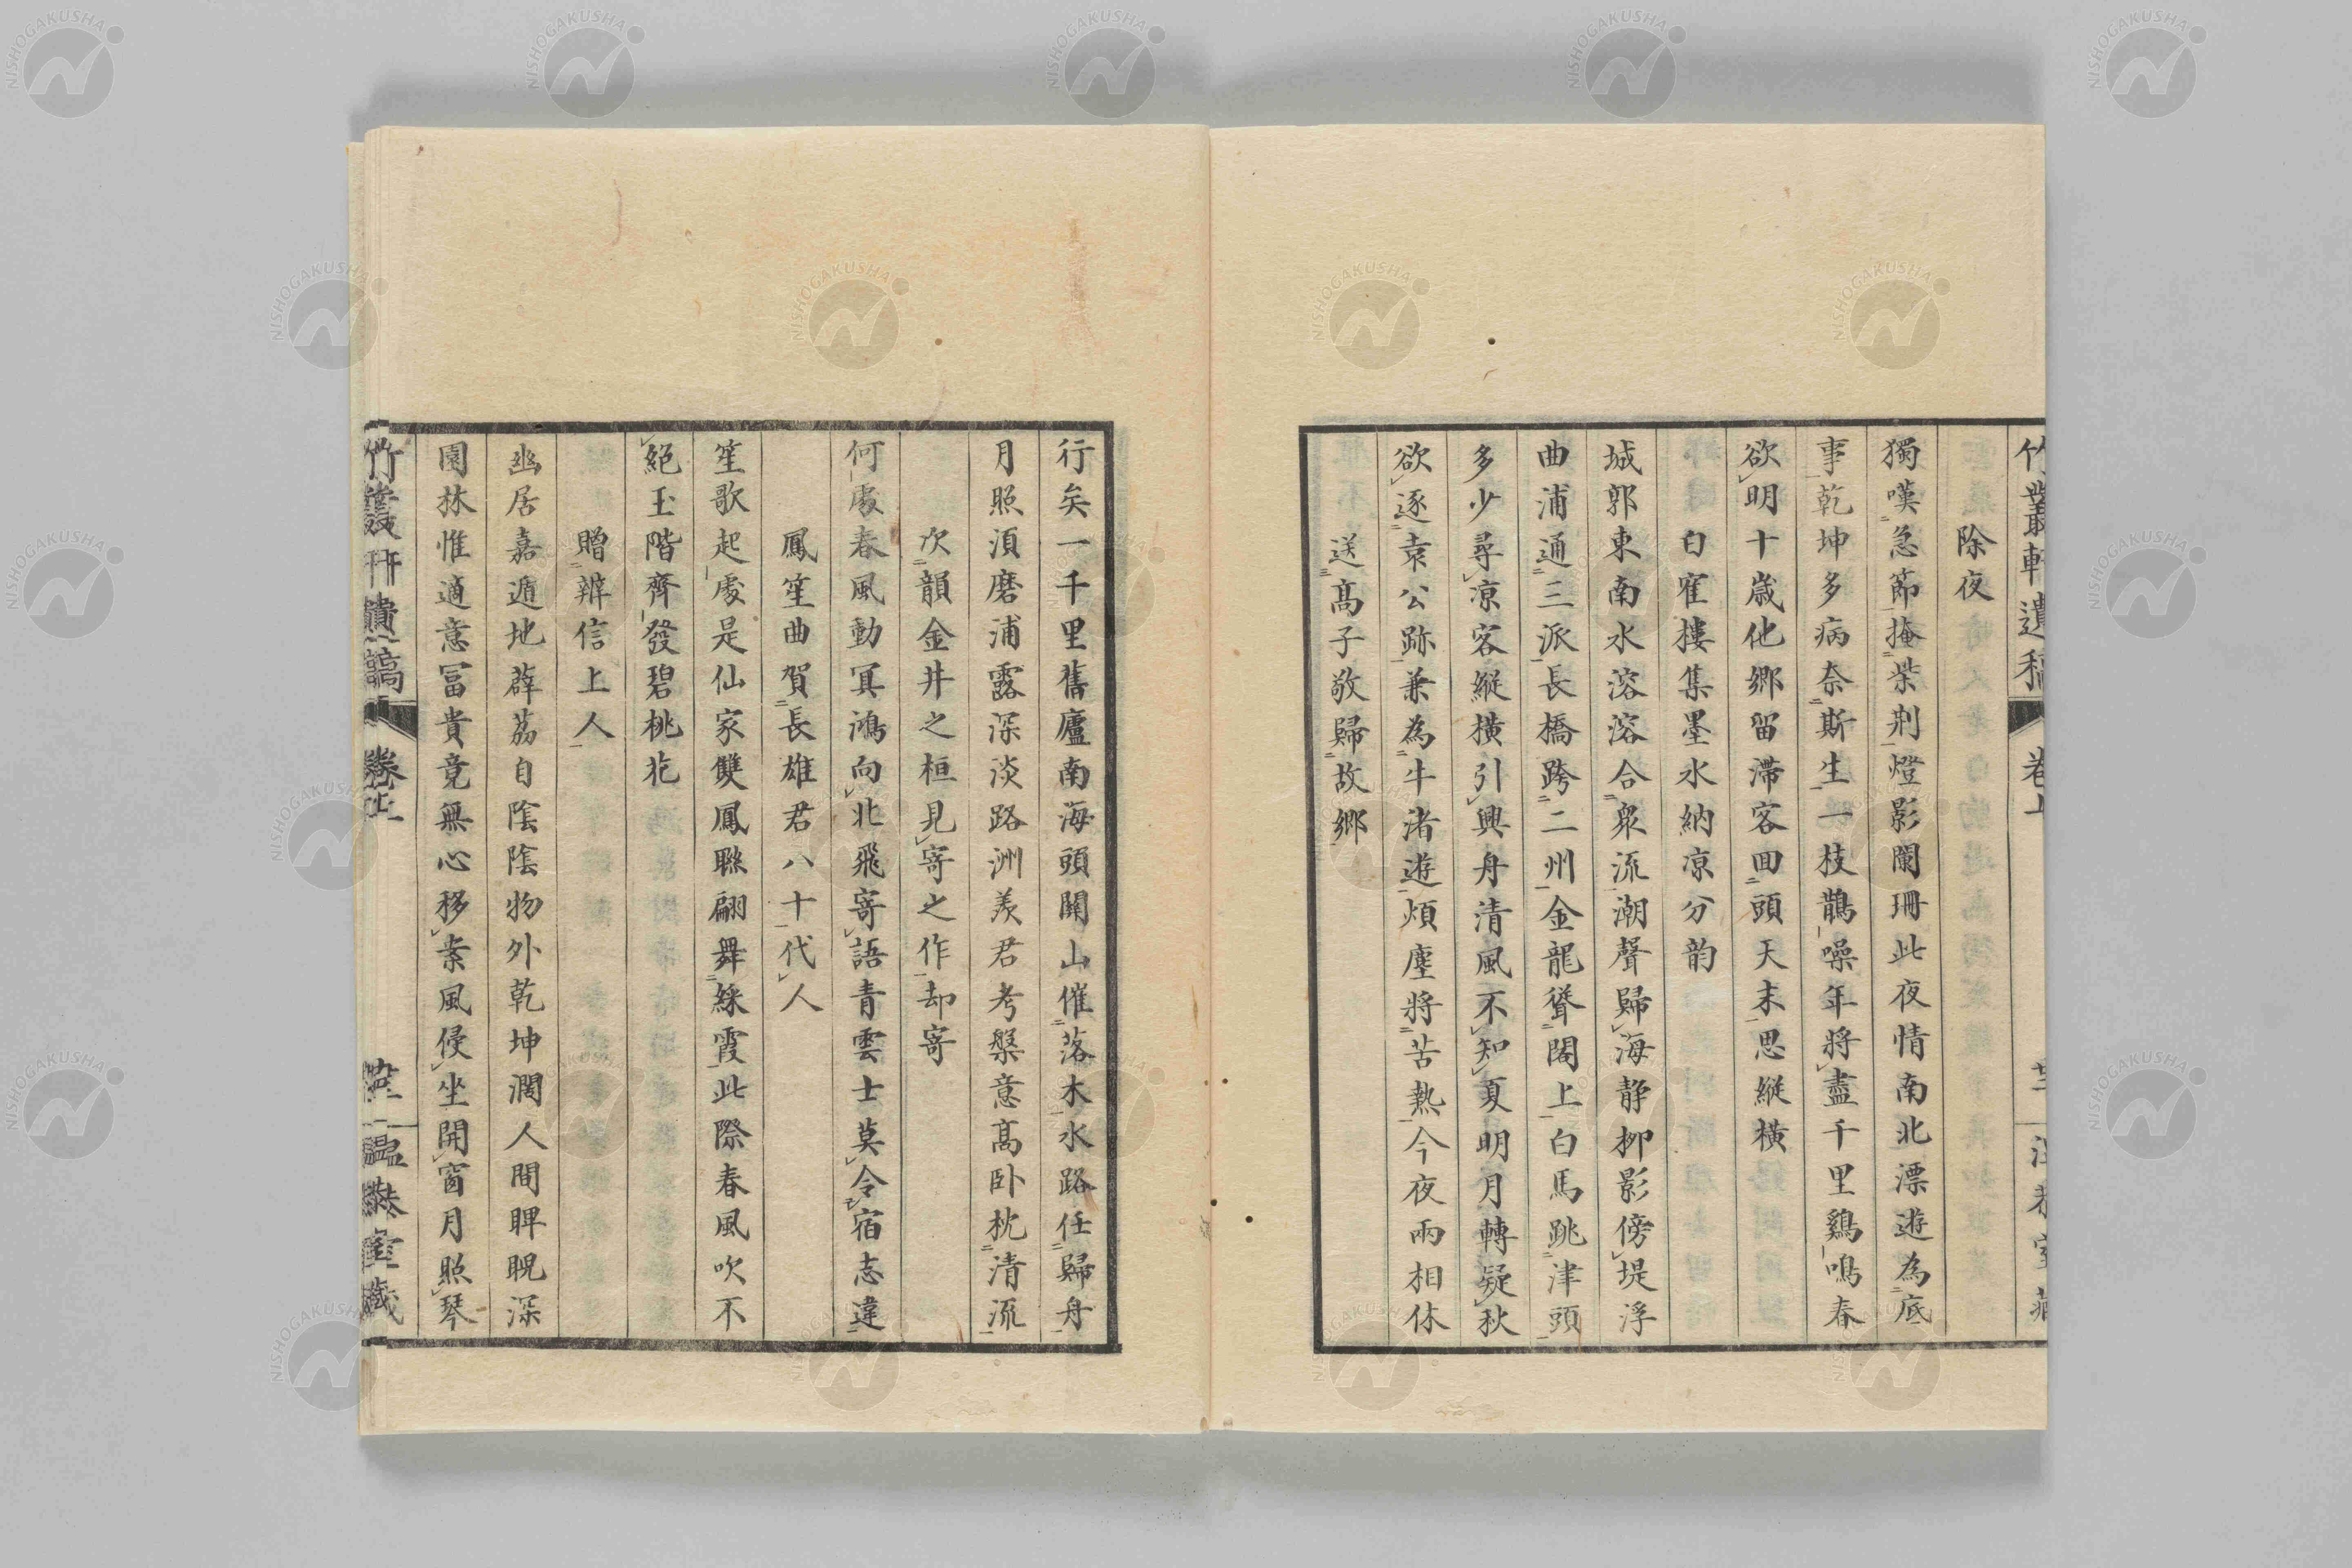 竹叢軒遺稿 卷上
除夜
獨嘆急節掩柴荆燈影闌珊此夜情南北漂遊為底
事乾坤多病奈斯生一枝鵲噪年將盡千里鷄鳴春
欲明十歲他鄉留滯客回頭天末思縱橫
白寉樓集墨水納凉分韵
城郭東南水溶溶合衆流潮聲歸海静柳影傍堤浮
曲浦通三派長橋跨二州金龍聳閣上白馬跳津頭
多少尋凉客縱横引興舟清風不知夏明月轉疑秋
欲逐袁公跡兼為牛渚遊煩塵將苦熱今夜兩相休
送髙子敬歸故鄉
行矣一千里舊廬南海頭關山催落木水路任歸舟
月照須磨浦露深淡路洲羨君考槃意髙卧枕清流
次韻金井之桓見寄之作却寄
何處春風動冥鴻向北飛寄語青雲士莫令宿志違
鳳笙曲賀長雄君八十代人
笙歌起處是仙家雙鳳聮翩舞綵霞此際春風吹不
絕玉階齊發碧桃花
贈辨信上人
幽居嘉遁地薜荔自陰陰物外乾坤濶人間睥睨深
園林惟適意冨貴竟無心移案風侵坐開窗月照琴
竹叢軒遺稿 卷上 温恭室藏